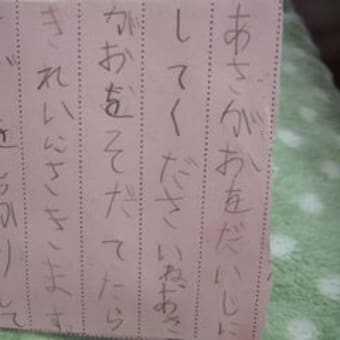 あさがおをだいじに
してくださいね。あさ
がおをそだてたら
きれいにさきます。